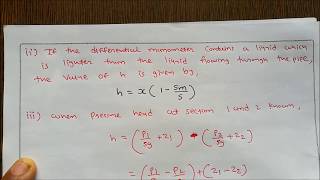 ii) If the differential manometer contains a liquid which
is lighter than the liquid flowing through the pipe,
the value of h is given by,
h = x ( 1 - Sm/S )
iii) when pressure head at section 1 and 2 known,
h = ( P1/ρg + z1 ) - ( P2/ρg + z2 )
= ( P1/ρg - P2/ρg ) + ( z1 - z2 )